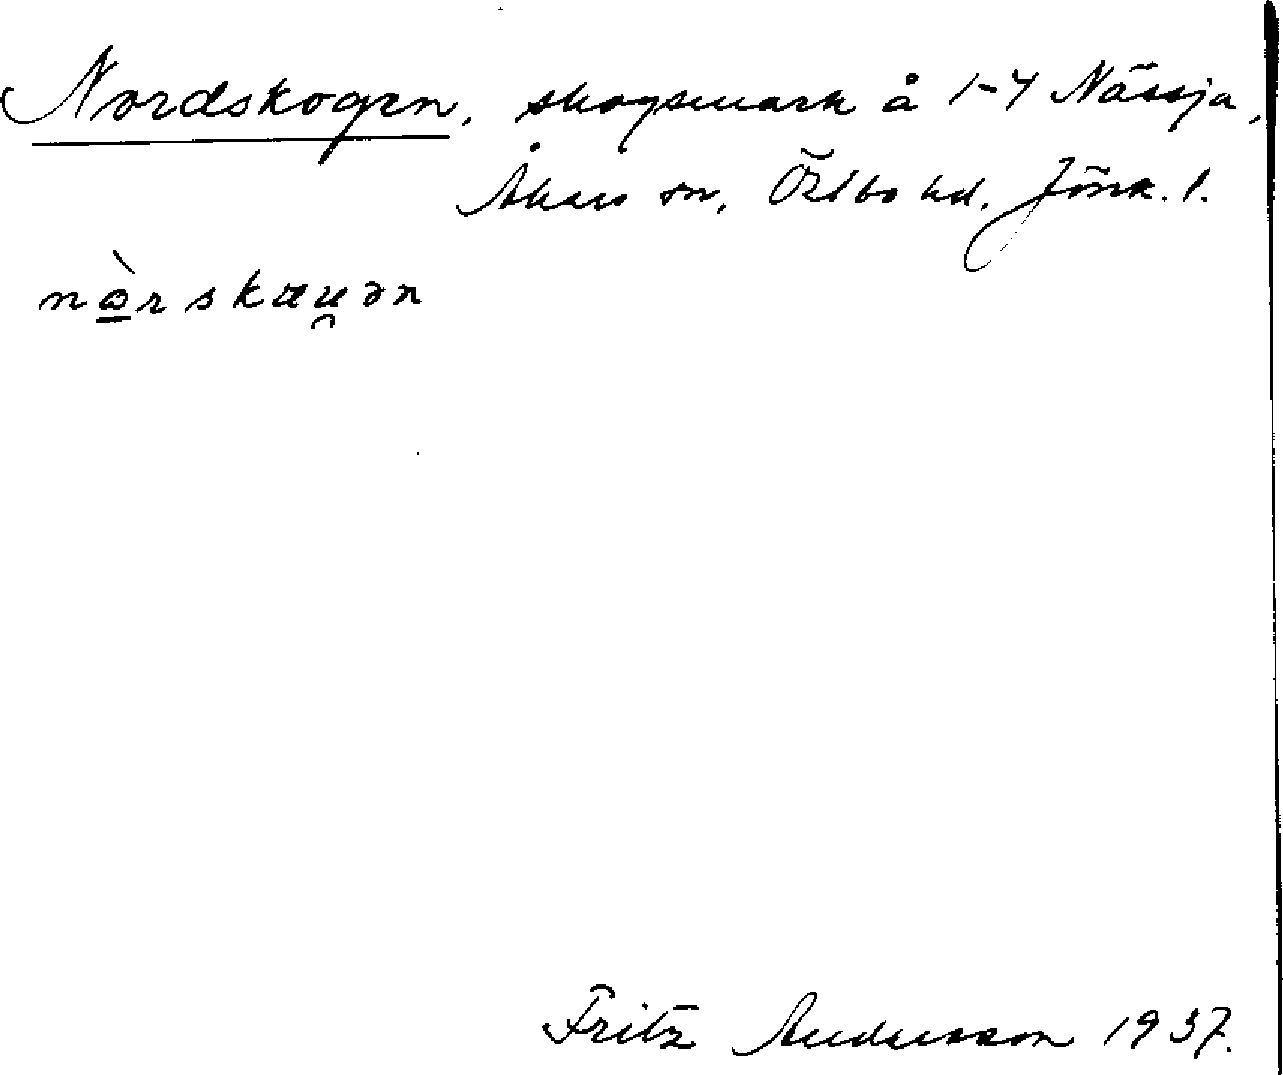 Nordskogen, skogsmark å 1-4 Nässja,
Åkers sn, Östbo hd. Jönk. l.
nòrskæu̯ən
Fritz Andersson 1937.